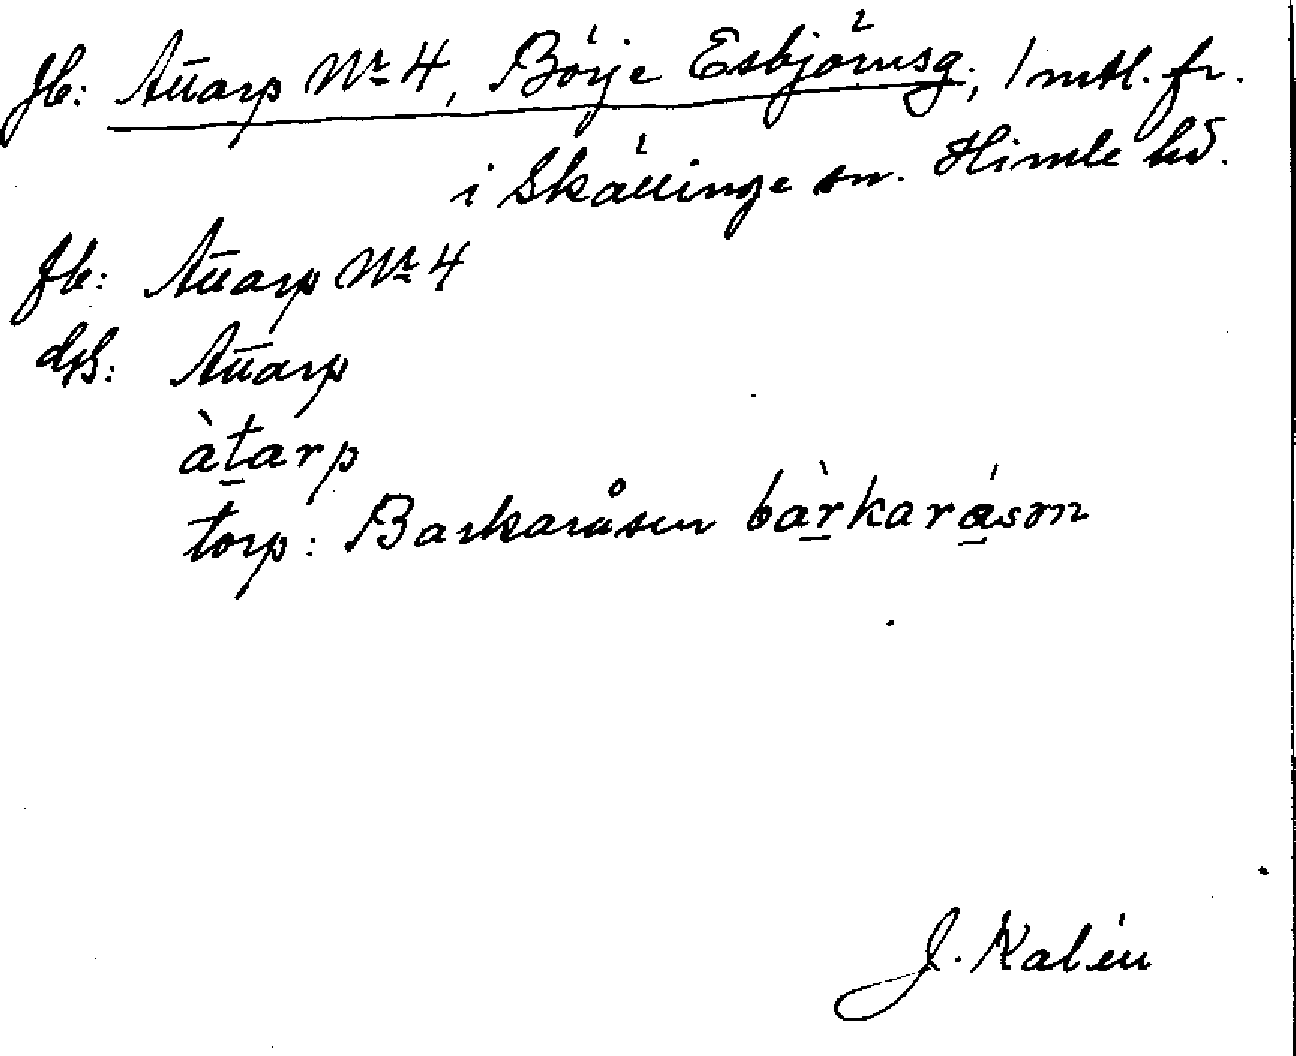 Jb: Attarp Nr 4, Börje Esbjörnsg., 1 mtl. fr.
i Skällinge sn. Himle hd.
Jb: Attarp Nr 4
dss: Attarp
àt̲arp
torp: Barkaråsen bàr̲kará̲sən
J. Kalén